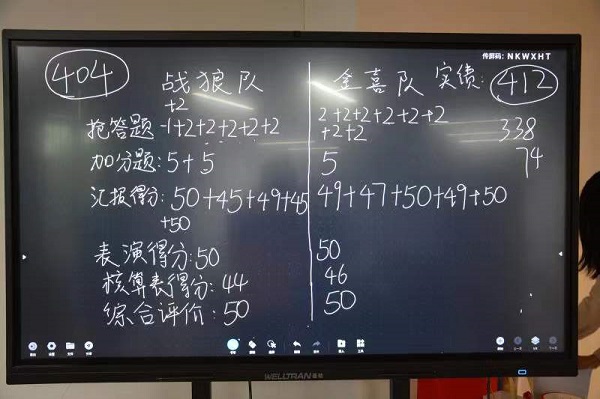 传屏码: NKWXHT
404 战狼队 金喜队 实绩: 412
+2
抢答题 -1+2+2+2+2+2 2+2+2+2+2+2 338
+2+2
加分题: 5+5 5 74
汇报得分: 50+45+49+45 49+47+50+49+50
+50
表演得分: 50 50
核算表得分: 44 46
综合评价: 50 50
WELLTRAN